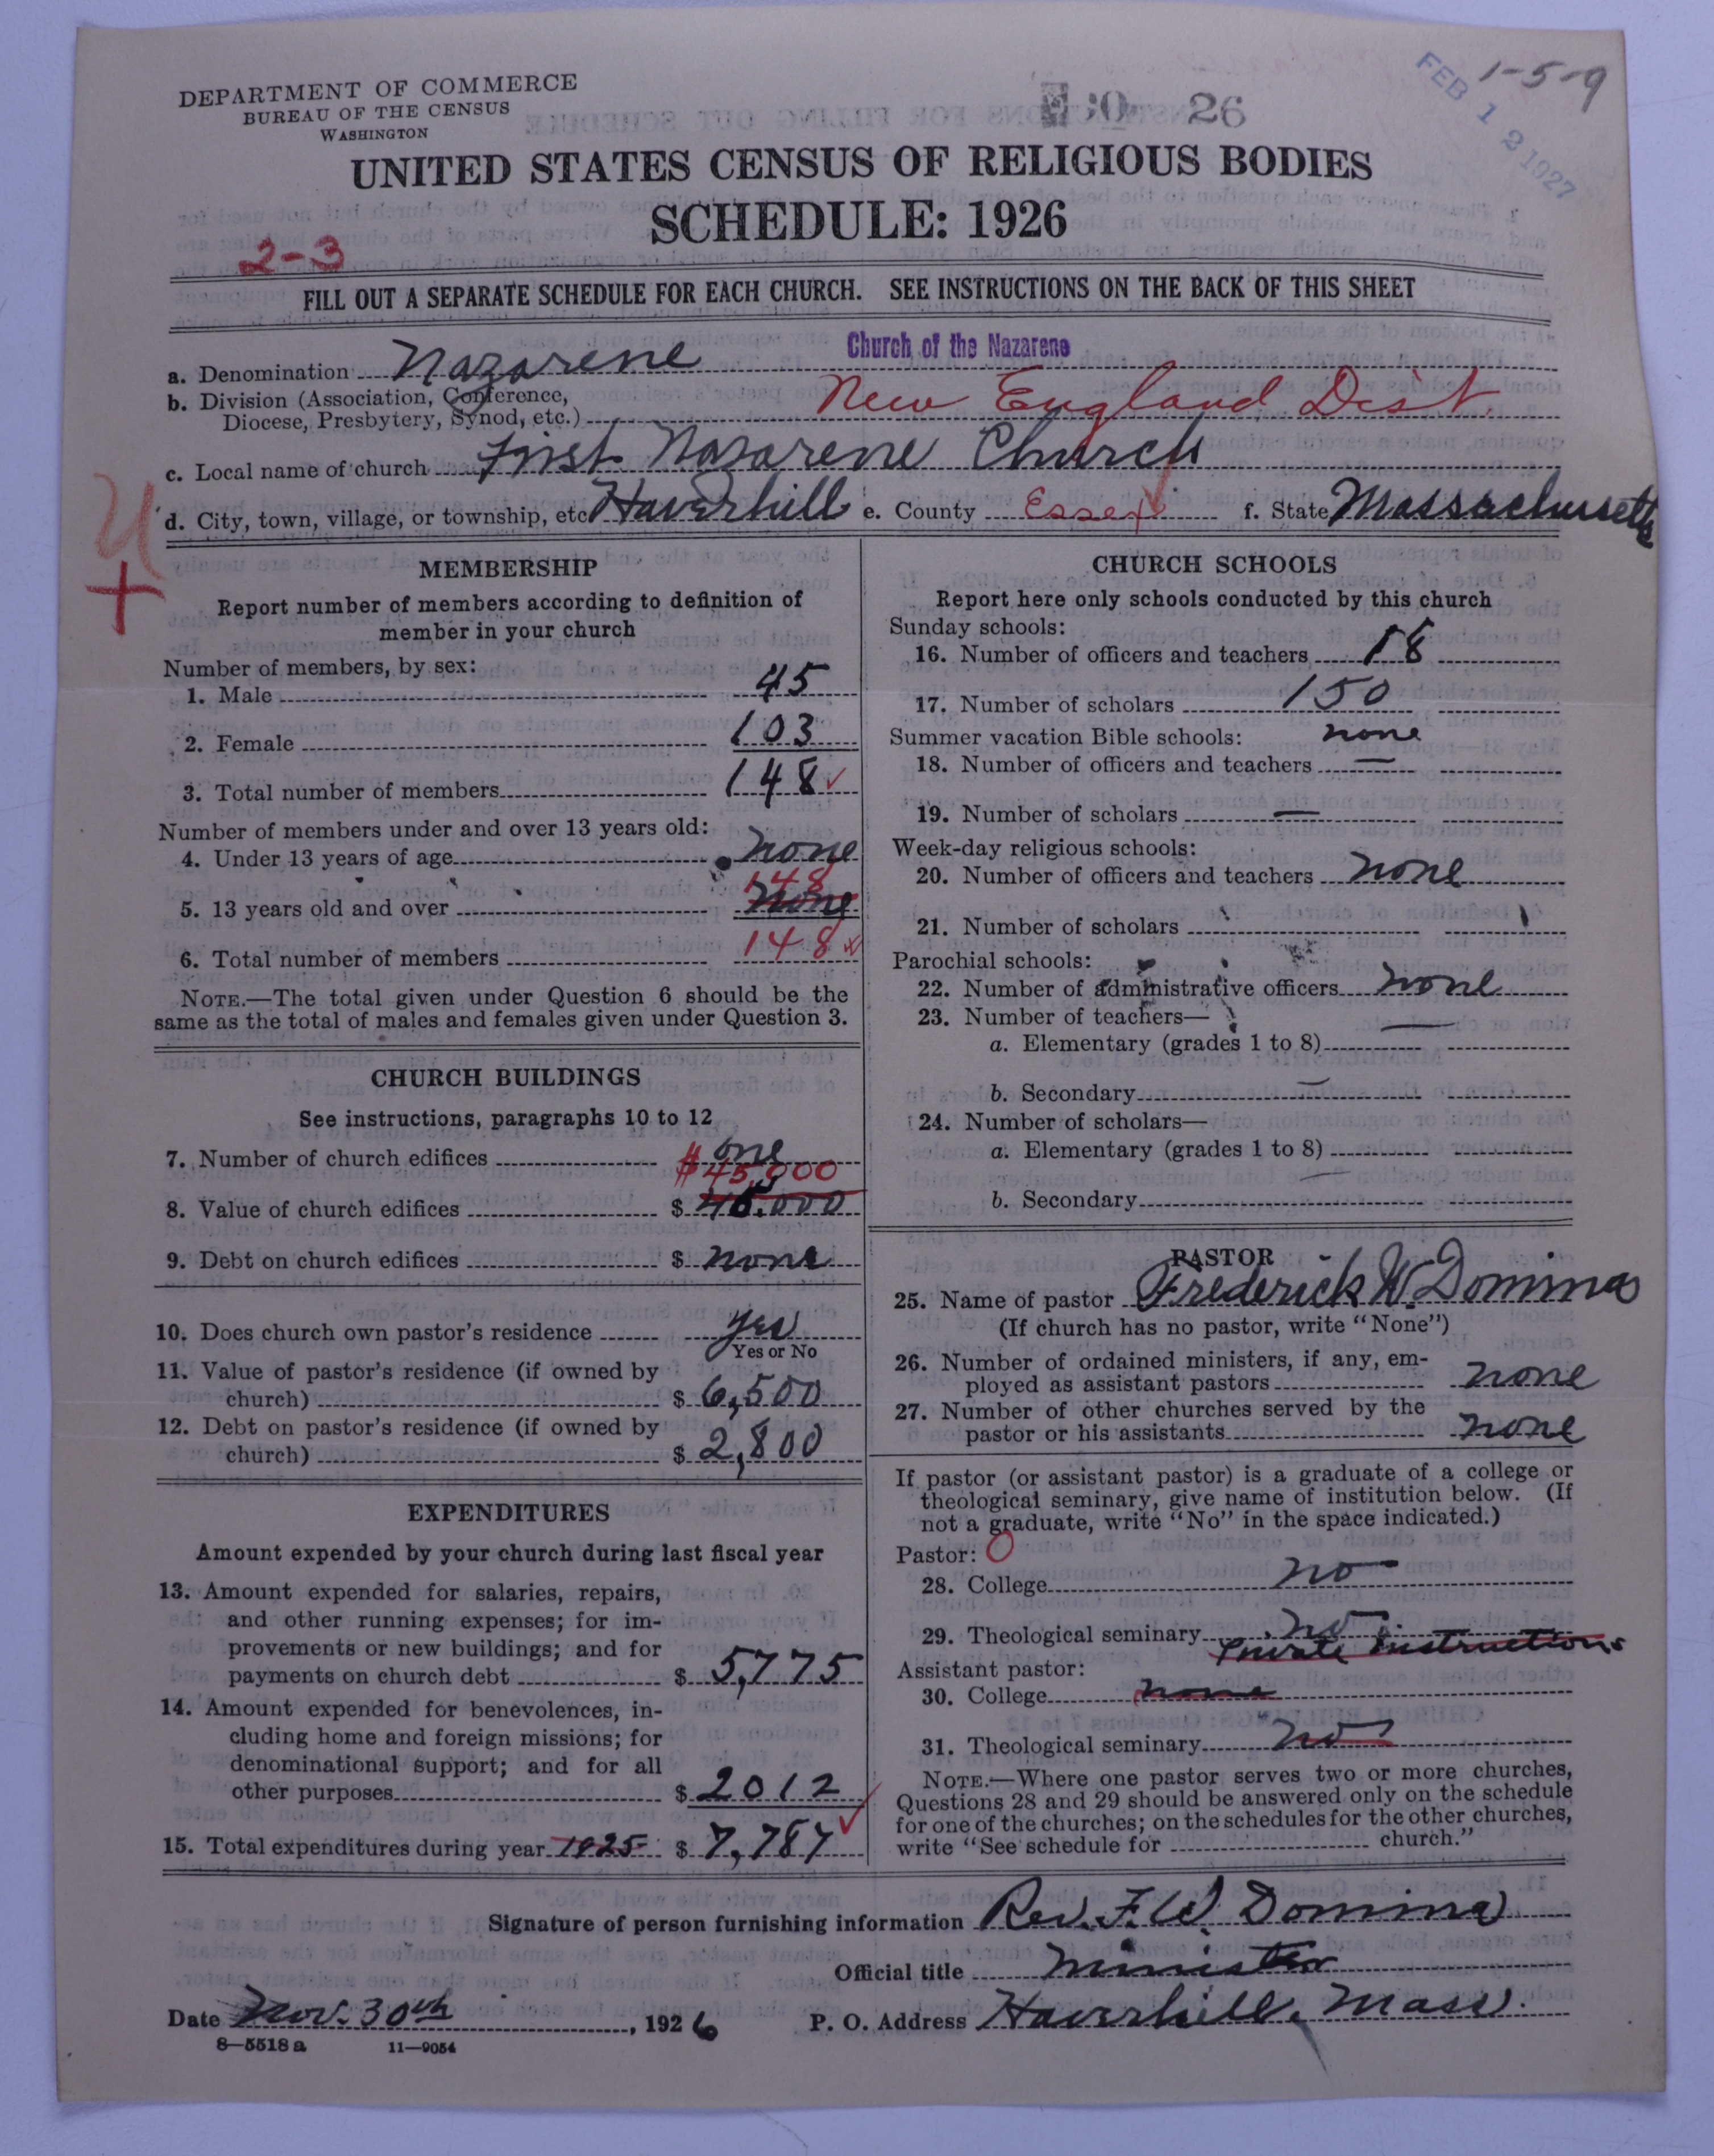 DEPARTMENT OF COMMERCE
BUREAU OF THE CENSUS
WASHINGTON
1-5-9
FEB 12 1927
26
UNITED STATES CENSUS OF RELIGIOUS BODIES
SCHEDULE: 1926
2-3
FILL OUT A SEPARATE SCHEDULE FOR EACH CHURCH. SEE INSTRUCTIONS ON THE BACK OF THIS SHEET
Church of the Nazarene
a. Denomination Nazarene
b. Division (Association, Conference,
Diocese, Presbytery, Synod, etc.) New England Dist.
c. Local name of church First Nazarene Church
d. City, town, village, or township, etc Haverhill e. County Essex f. State Massachusetts
MEMBERSHIP
Report number of members according to definition of
member in your church
Number of members, by sex:
1. Male 45
2. Female 103
3. Total number of members 148
Number of members under and over 13 years old:
4. Under 13 years of age none
148
5. 13 years old and over none
6. Total number of members 148
NOTE.—The total given under Question 6 should be the
same as the total of males and females given under Question 3.
CHURCH BUILDINGS
See instructions, paragraphs 10 to 12
7. Number of church edifices one
$45,000
8. Value of church edifices $ 45.000
9. Debt on church edifices $ none
10. Does church own pastor's residence yes
Yes or No
11. Value of pastor's residence (if owned by
church) $ 6,500
12. Debt on pastor's residence (if owned by
church) $ 2,800
EXPENDITURES
Amount expended by your church during last fiscal year
13. Amount expended for salaries, repairs,
and other running expenses; for im-
provements or new buildings; and for
payments on church debt $ 5,775
14. Amount expended for benevolences, in-
cluding home and foreign missions; for
denominational support; and for all
other purposes $ 2012
15. Total expenditures during year 1925 $ 7,787
CHURCH SCHOOLS
Report here only schools conducted by this church
Sunday schools:
16. Number of officers and teachers 18
17. Number of scholars 150
Summer vacation Bible schools: none
18. Number of officers and teachers —
19. Number of scholars —
Week-day religious schools:
20. Number of officers and teachers none
21. Number of scholars
Parochial schools:
22. Number of administrative officers none
23. Number of teachers—
a. Elementary (grades 1 to 8) —
b. Secondary —
24. Number of scholars—
a. Elementary (grades 1 to 8)
b. Secondary —
PASTOR
25. Name of pastor Frederick W. Domina
(If church has no pastor, write "None")
26. Number of ordained ministers, if any, em-
ployed as assistant pastors none
27. Number of other churches served by the
pastor or his assistants none
If pastor (or assistant pastor) is a graduate of a college or
theological seminary, give name of institution below. (If
not a graduate, write "No" in the space indicated.)
Pastor: O
28. College no
29. Theological seminary no
Private instructions
Assistant pastor:
30. College none
31. Theological seminary no
NOTE.—Where one pastor serves two or more churches,
Questions 28 and 29 should be answered only on the schedule
for one of the churches; on the schedules for the other churches,
write "See schedule for church."
Signature of person furnishing information Rev. F. W. Domina
Official title minister
Date Nov. 30th, 1926 P. O. Address Haverhill, Mass.
8—5518 a 11—9054